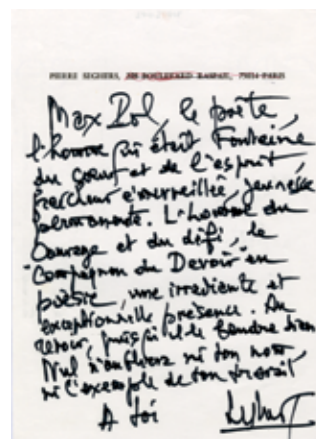 PIERRE SEGHERS, BOULEVARD RASPAIL, 75014 PARIS
Max Pol, le poète,
l'homme qui était Fontaine
du cœur et de l'esprit
fraîcheur émerveillée, jeunesse
permanente. L'homme du
Courage et du défi, le
"Compagnon du Devoir" en
poésie, une irradiante et
exceptionnelle présence. Au
retour, puisqu'il
Nul n'oubliera ni ton nom
ni l'exemple de ton travail
A toi